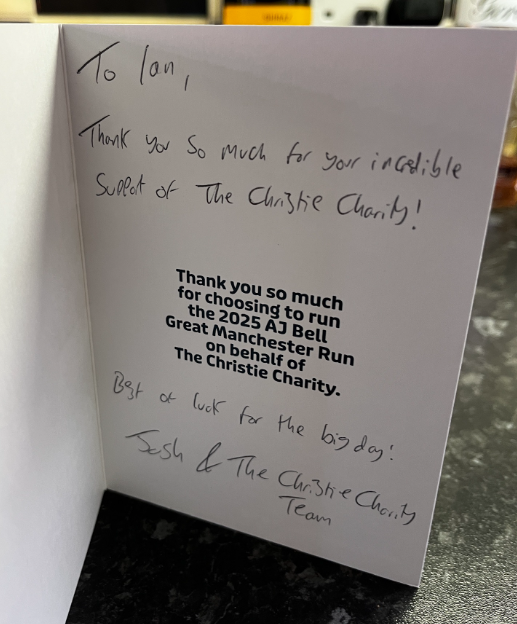 To Ian,
Thank you so much for your incredible
Support of The Christie Charity!
Thank you so much
for choosing to run
the 2025 AJ Bell
Great Manchester Run
on behalf of
The Christie Charity.
Best of luck for the big day!
Josh & The Christie Charity
Team